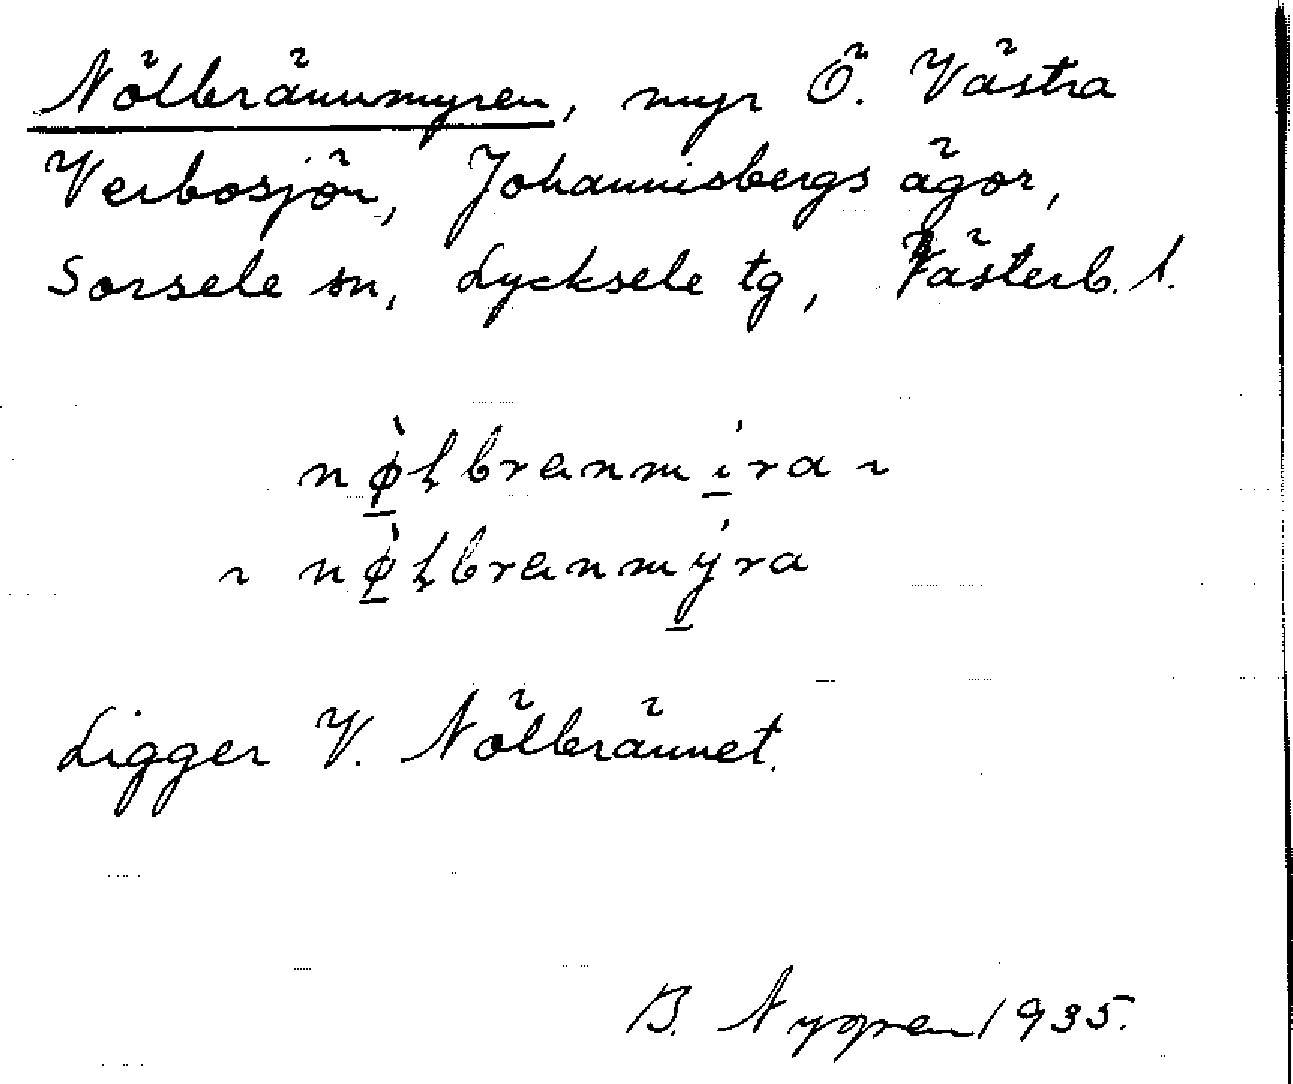 Nölbrännmyren, myr Ö. Västra
Verbosjön, Johannisbergs ägor,
Sorsele sn, Lycksele tg, Västerb. l.
nø̱̀ɭbranmí̱ra ~
~ nø̱̀ɭbranmý̱ra
Ligger V. Nölbrännet.
B. Nygren 1935.